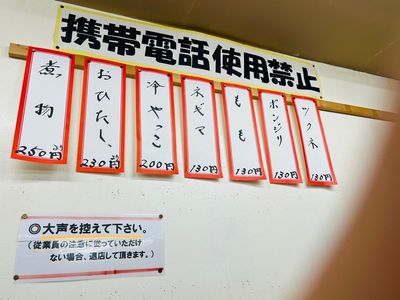 携帯電話使用禁止
ツクネ
130円
ボンジリ
130円
もも
130円
ネギマ
130円
冷やっこ
200円
おひたし
230円
煮物
250円
◎大声を控えて下さい。
(従業員の注意に従っていただけ
ない場合、退店して頂きます。)